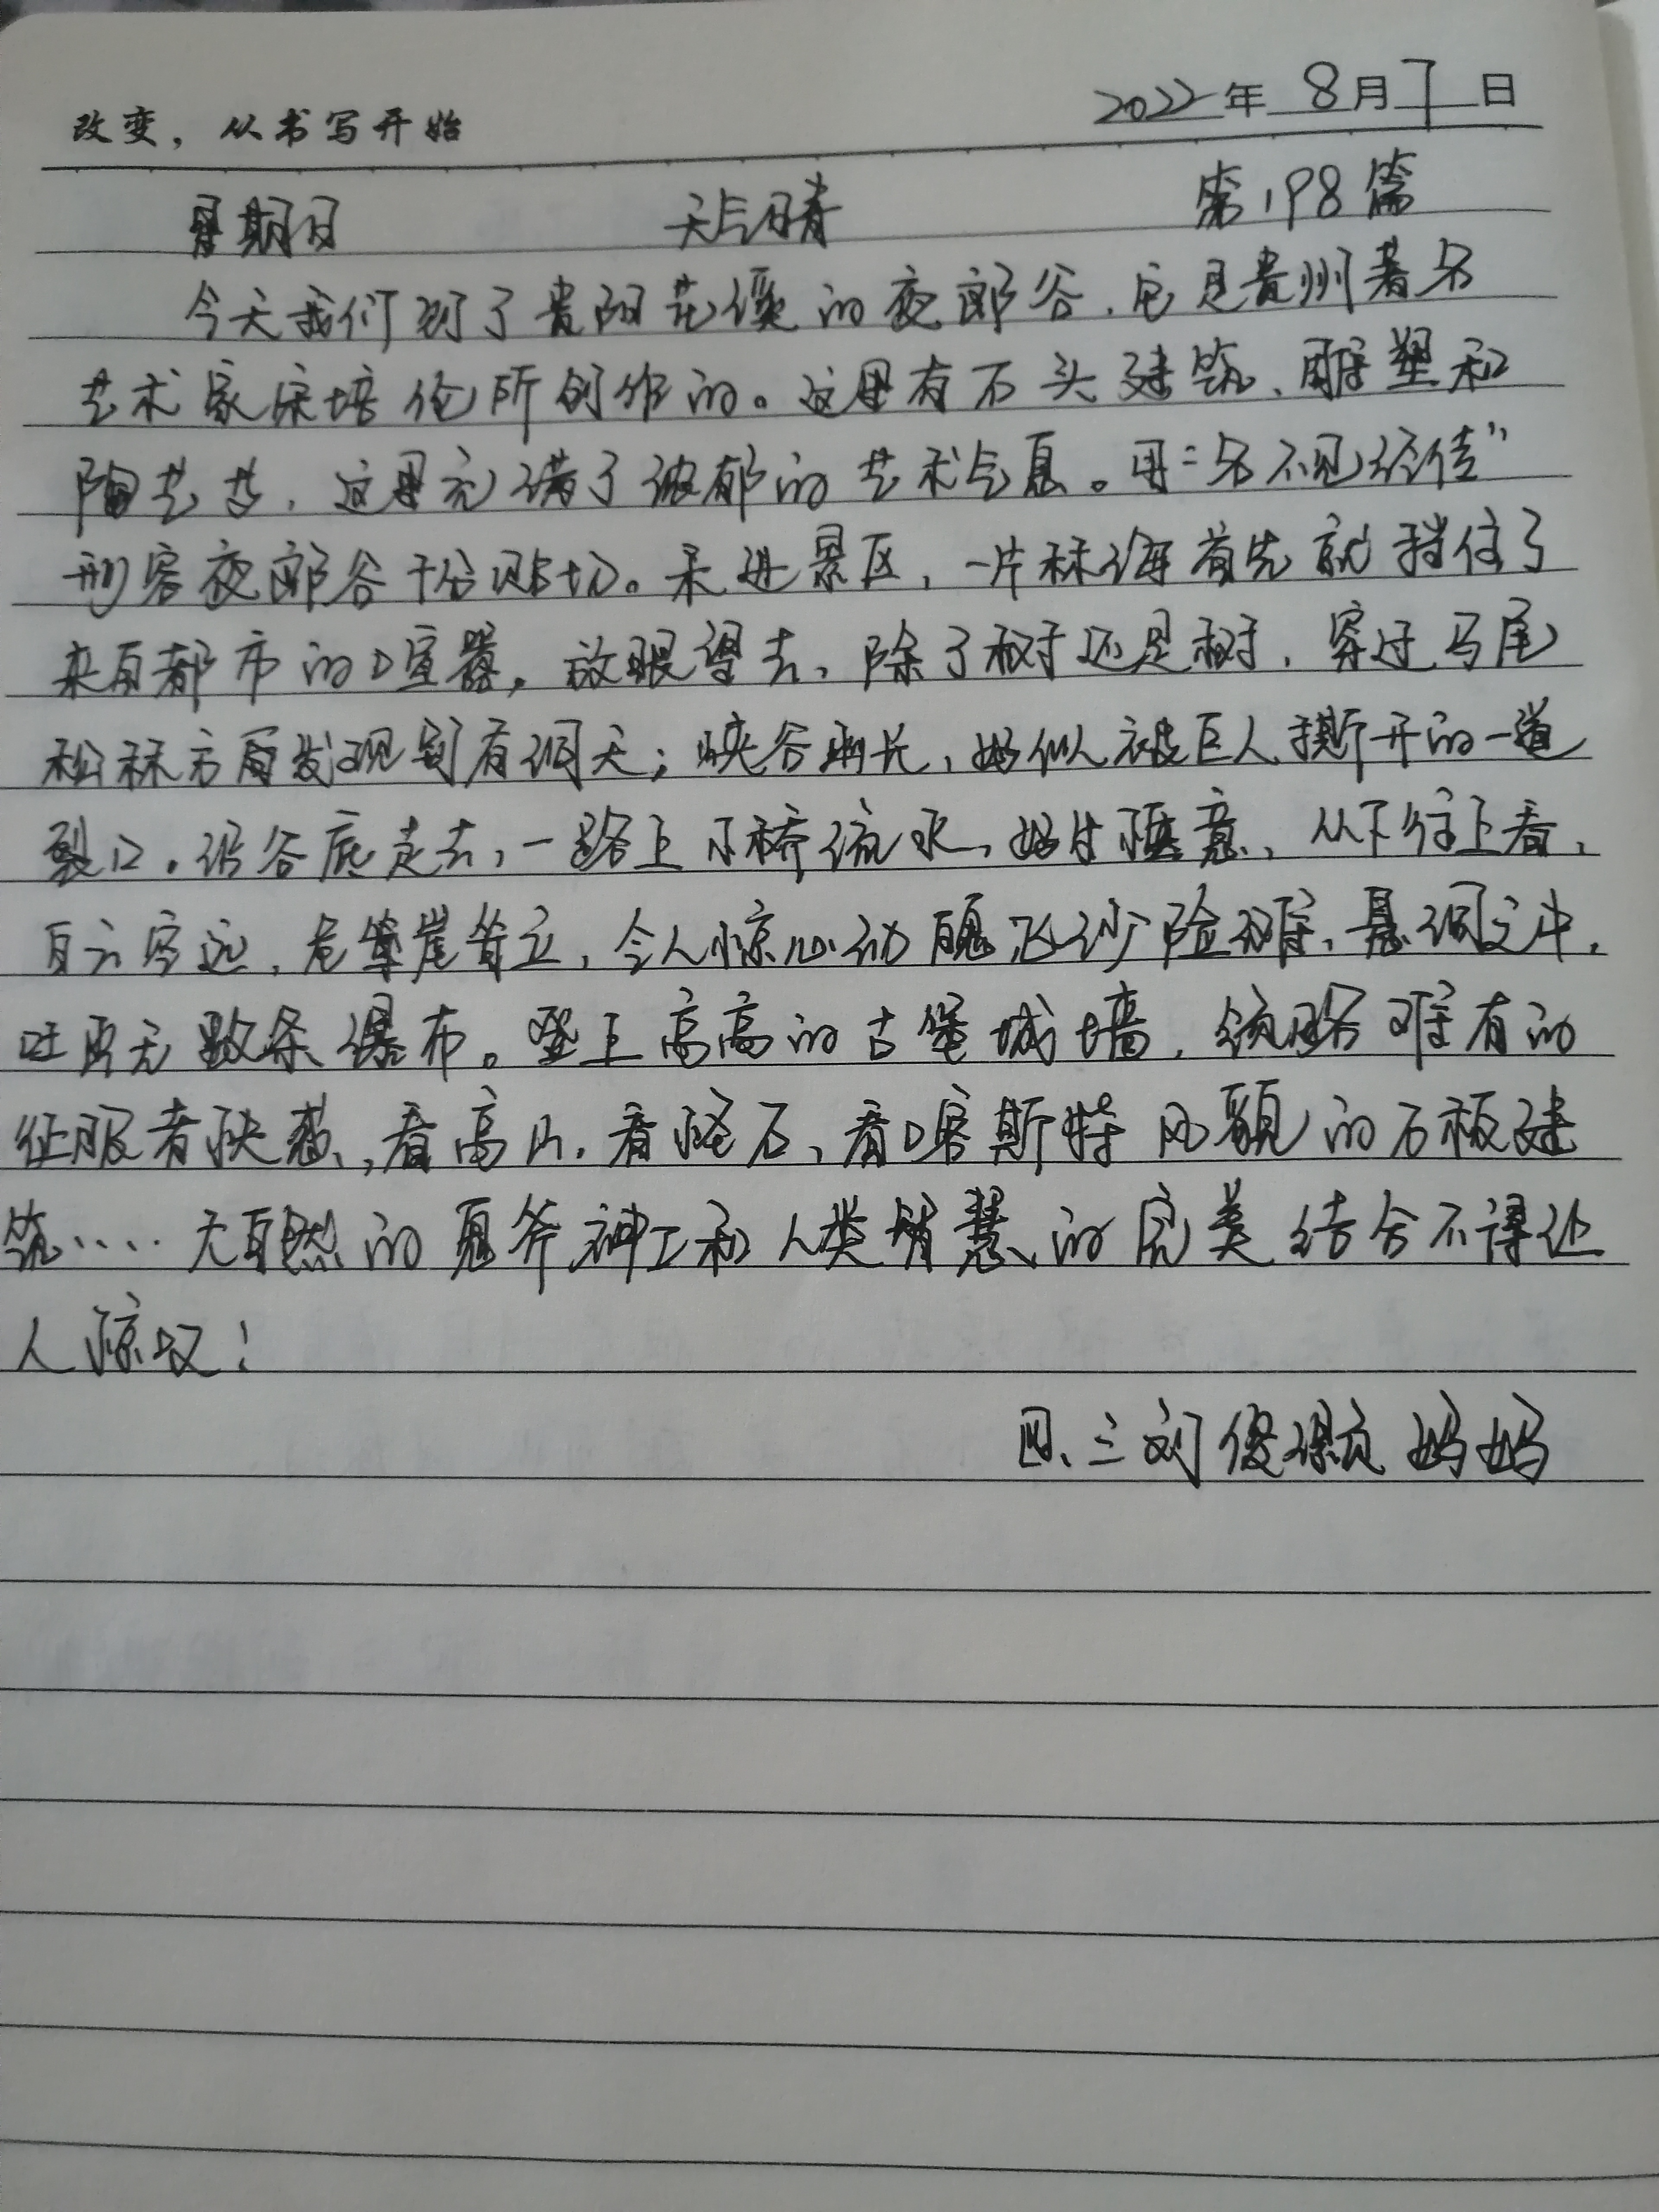 改变，从书写开始
2022年 8月7日
星期日 天气晴 第198篇
今天我们到了贵阳花溪的夜郎谷，它是贵州著名
艺术家宋培伦所创作的。这里有石头建筑、雕塑和
陶艺艺，这里充满了浓郁的艺术气息。用“名不见经传”
形容夜郎谷十分贴切。未进景区，一片林海首先就挡住了
来自都市的喧嚣，放眼望去，除了树还是树，穿过马尾
松林方有发现别有洞天；峡谷幽长，好似被巨人撕开的一道
裂口。沿谷底走去，一路上小桥流水，好生惬意、从下往上看，
白云客远，危崖耸立，令人惊心动魄飞沙险滩，悬洞之中，
吐出无数条瀑布。登上高高的古堡城墙，领略难有的
征服者快感，看高山，看怪石、看喀斯特风貌的石板建
筑…… 大自然的鬼斧神工和人类智慧的完美结合不得让
人惊叹！
四、三刘俊 妈妈